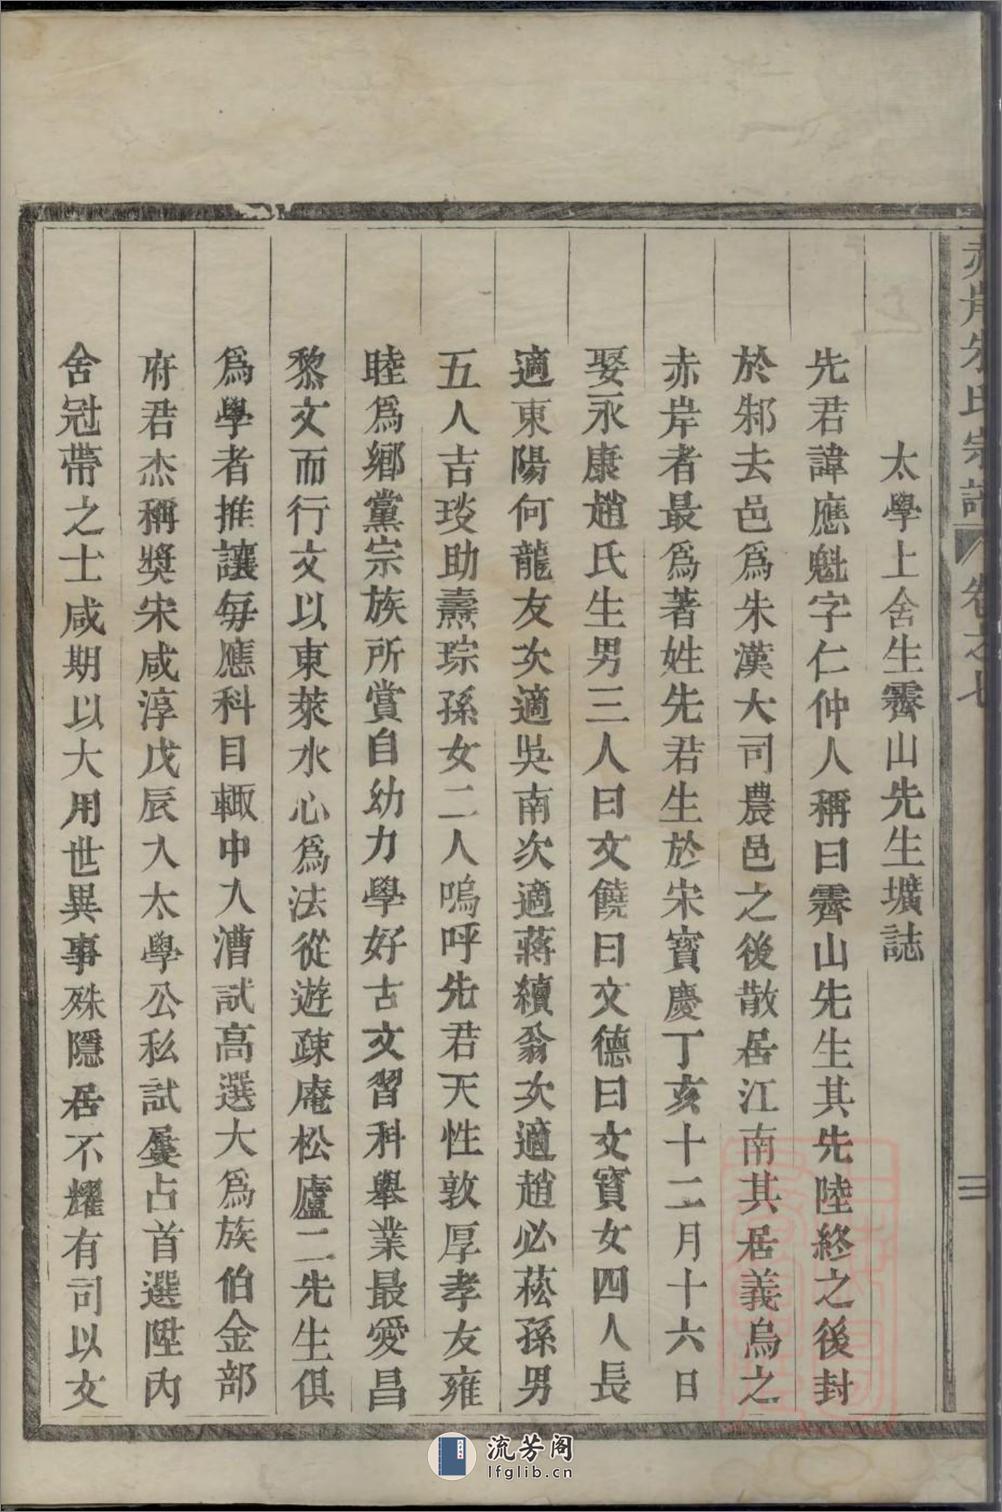 赤岸朱氏宗譜 卷之七
太學上舍生霽山先生壙誌
先君諱應魁字仁仲人稱曰霽山先生其先陸終之後封
於邾去邑爲朱漢大司農邑之後散居江南其居義烏之
赤岸者最爲著姓先君生於宋寶慶丁亥十二月十六日
娶永康趙氏生男三人曰文饒曰文德曰文寶女四人長
適東陽何龍友次適吳南次適蔣續翁次適趙必菘孫男
五人吉琰助燾琮孫女二人嗚呼先君天性敦厚孝友雍
睦爲鄉黨宗族所賞自幼力學好古文習科舉業最愛昌
黎文而行文以東萊水心爲法從遊疎庵松廬二先生俱
爲學者推讓每應科目輙中入漕試高選大爲族伯金部
府君杰稱獎宋咸淳戊辰入太學公私試屢占首選陞內
舍冠帶之士咸期以大用世異事殊隱居不耀有司以文
流芳阁
lfglib.cn